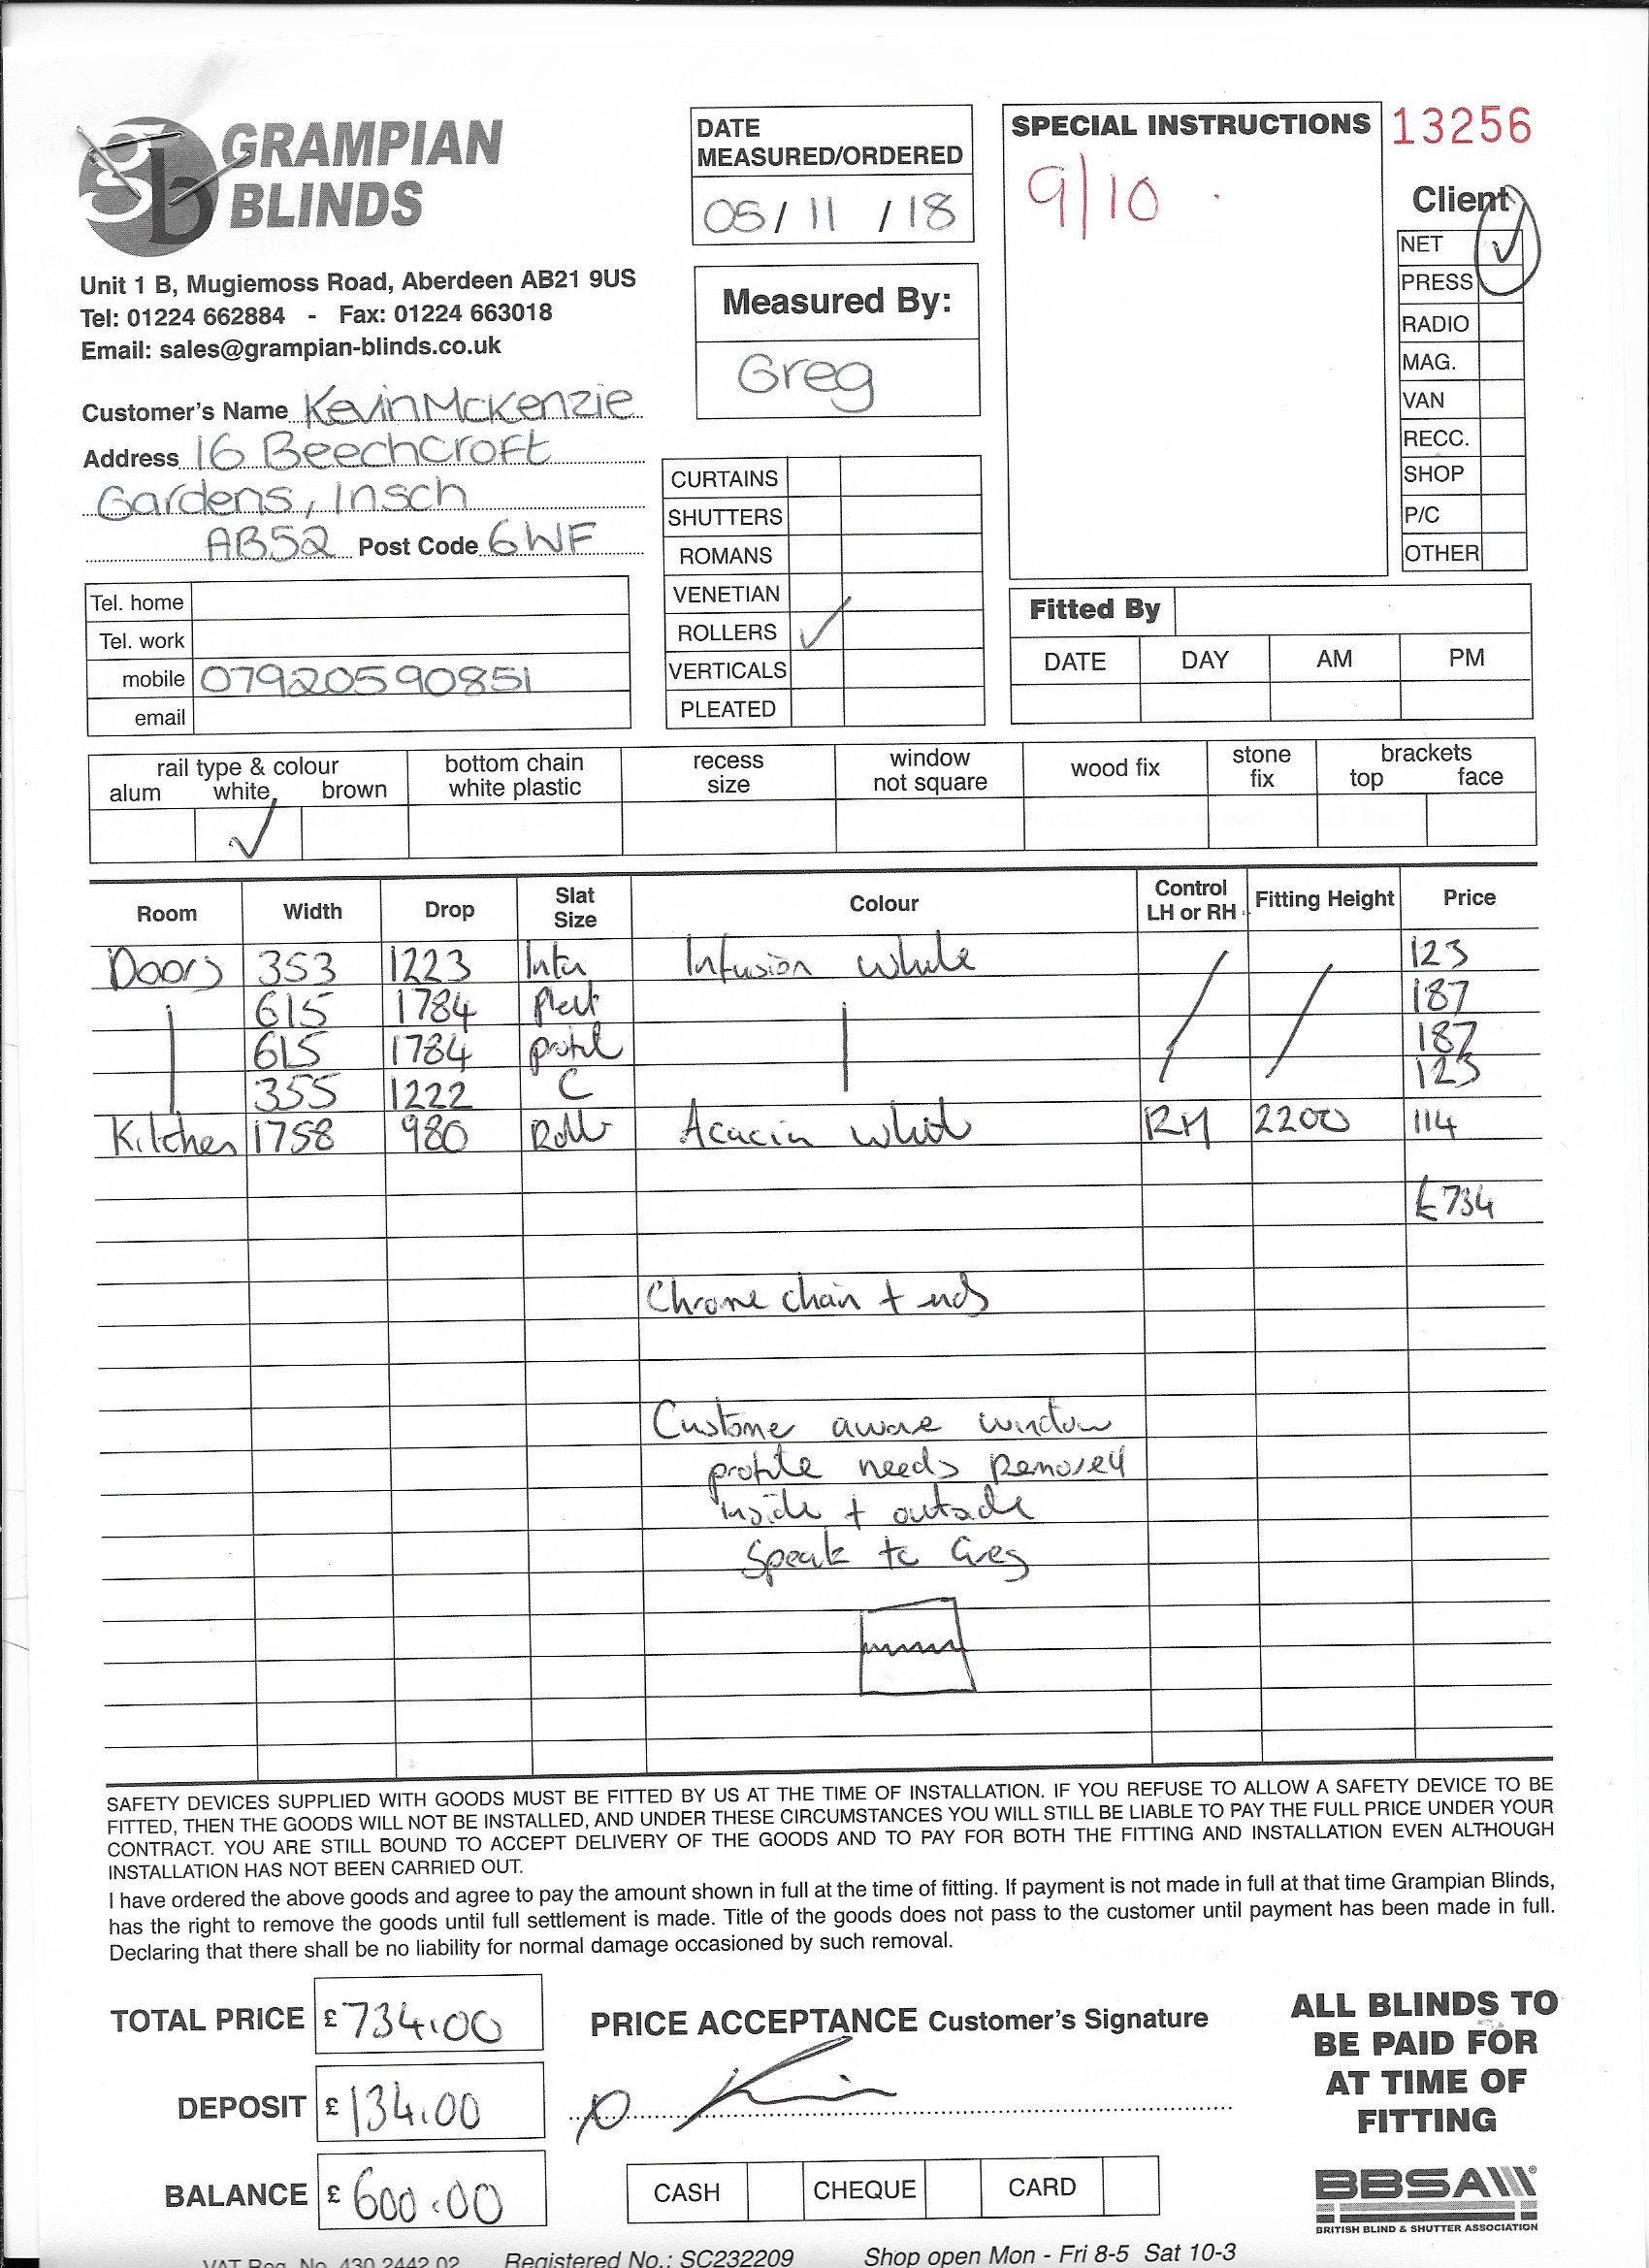 gb GRAMPIAN BLINDS
Unit 1 B, Mugiemoss Road, Aberdeen AB21 9US
Tel: 01224 662884 - Fax: 01224 663018
Email: sales@grampian-blinds.co.uk
Customer's Name Kevin McKenzie
Address 16 Beechcroft
Gardens, Insch
AB52 Post Code 6WF
Tel. home
Tel. work
mobile 07920590851
email
DATE
MEASURED/ORDERED
05/11/18
Measured By:
Greg
CURTAINS
SHUTTERS
ROMANS
VENETIAN
ROLLERS ✓
VERTICALS
PLEATED
SPECIAL INSTRUCTIONS
9/10
13256
Client
NET ✓
PRESS
RADIO
MAG.
VAN
RECC.
SHOP
P/C
OTHER
Fitted By
DATE DAY AM PM
rail type & colour
alum white brown
✓
bottom chain
white plastic
recess
size
window
not square
wood fix
stone
fix
brackets
top face
Room Width Drop Slat Size Colour Control LH or RH Fitting Height Price
Doors 353 1223 Inter Infusion White 123
615 1784 187
615 1784 187
355 1222 C 123
Kitchen 1758 980 Acacia RH 2200 114
£734
Chrome chain + ends
Custome aware window
profile needs
inside + outside
Speak to Greg
SAFETY DEVICES SUPPLIED WITH GOODS MUST BE FITTED BY US AT THE TIME OF INSTALLATION. IF YOU REFUSE TO ALLOW A SAFETY DEVICE TO BE
FITTED, THEN THE GOODS WILL NOT BE INSTALLED, AND UNDER THESE CIRCUMSTANCES YOU WILL STILL BE LIABLE TO PAY THE FULL PRICE UNDER YOUR
CONTRACT. YOU ARE STILL BOUND TO ACCEPT DELIVERY OF THE GOODS AND TO PAY FOR BOTH THE FITTING AND INSTALLATION EVEN ALTHOUGH
INSTALLATION HAS NOT BEEN CARRIED OUT.
I have ordered the above goods and agree to pay the amount shown in full at the time of fitting. If payment is not made in full at that time Grampian Blinds,
has the right to remove the goods until full settlement is made. Title of the goods does not pass to the customer until payment has been made in full.
Declaring that there shall be no liability for normal damage occasioned by such removal.
TOTAL PRICE £734.00
DEPOSIT £134.00
BALANCE £600.00
PRICE ACCEPTANCE Customer's Signature
CASH CHEQUE CARD
ALL BLINDS TO
BE PAID FOR
AT TIME OF
FITTING
BBSA
BRITISH BLIND & SHUTTER ASSOCIATION
VAT Reg. No. 430 2442 02 Registered No.: SC232209 Shop open Mon - Fri 8-5 Sat 10-3